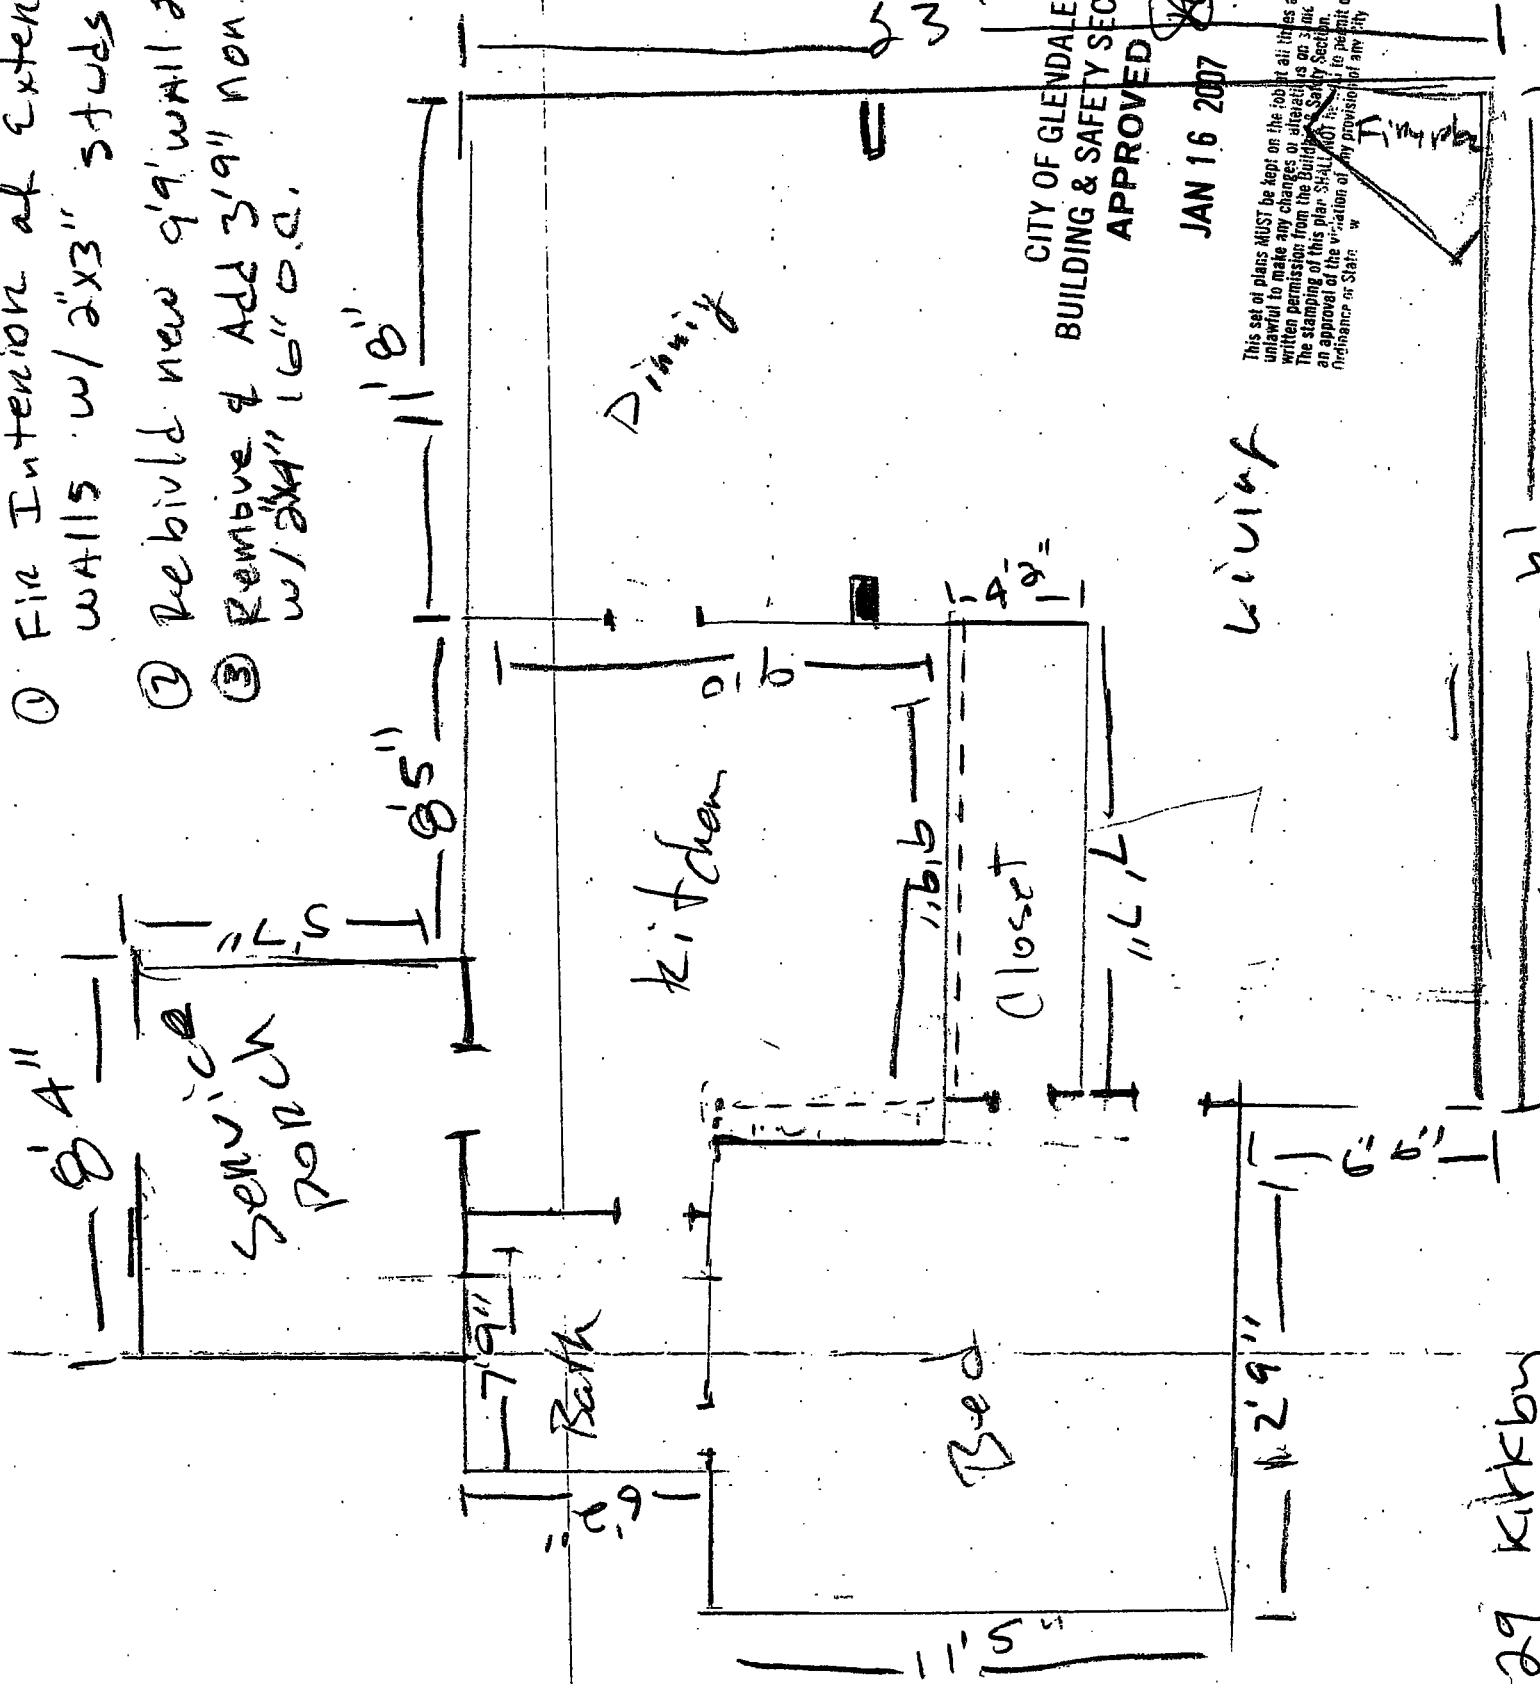 ① Fir Interior at Exten
walls w/ 2"x3" studs
② Rebiuld new 9'9" wall 2
③ Remove & Add 3'9" non
w/ 2"x4" 16" o.c.
8' 4"
Service
porch
5'7"
8'5"
11'8"
23
Kitchen
9'0"
9'9"
Dining
Closet
7'7"
Living
7'9"
Bath
Bed
11'5"
12'9"
6'6"
29 Kirkby
CITY OF GLENDALE
BUILDING & SAFETY SEC
APPROVED
JAN 16 2007
This set of plans MUST be kept on the job at all times a
unlawful to make any changes or alterations on
written permission from the Building & Safety Section.
The stamping of this plan SHALL NOT be to permit o
an approval of the violation of any provision of any City
Ordinance or State